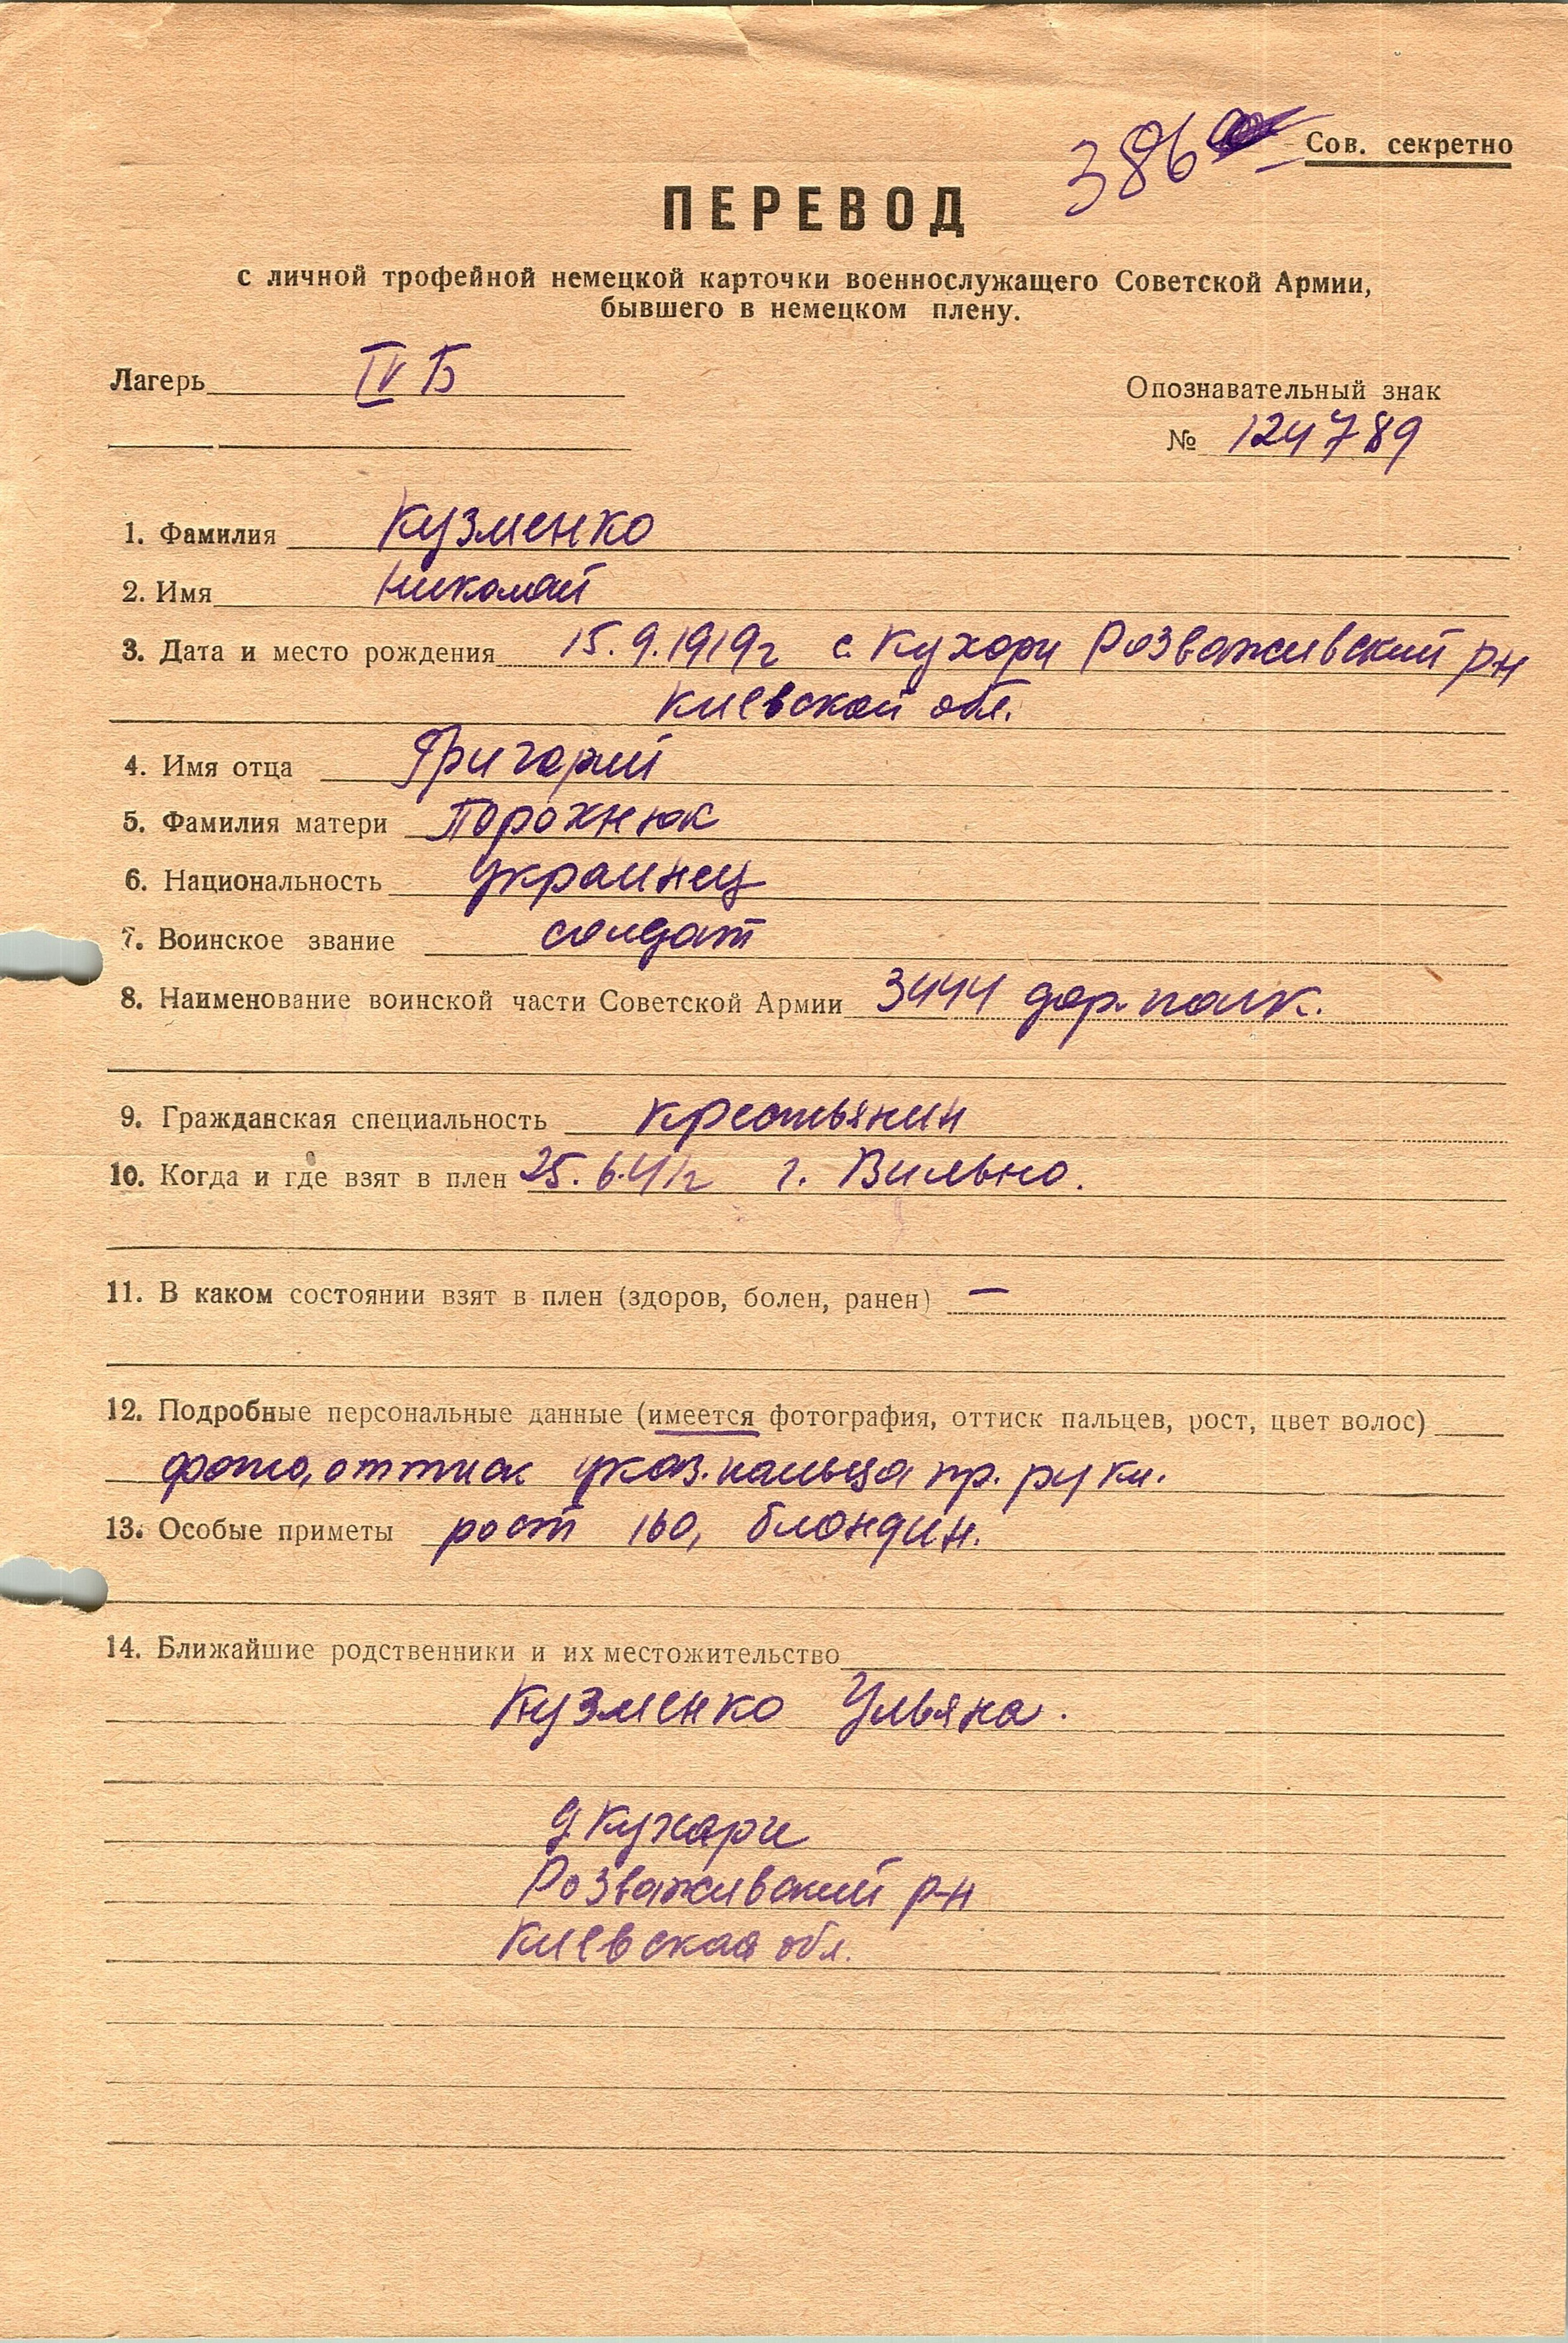 386
Сов. секретно
ПЕРЕВОД
с личной трофейной немецкой карточки военнослужащего Советской Армии,
бывшего в немецком плену.
Лагерь IV Б
Опознавательный знак
№ 124789
1. Фамилия Кузменко
2. Имя Николай
3. Дата и место рождения 15.9.1919г с. Кухори Розважевский р-н
Киевской обл.
4. Имя отца Григорий
5. Фамилия матери Порохнюк
6. Национальность украинец
7. Воинское звание солдат
8. Наименование воинской части Советской Армии 3444 дор. полк.
9. Гражданская специальность крестьянин
10. Когда и где взят в плен 25.6.41г г. Вильно.
11. В каком состоянии взят в плен (здоров, болен, ранен) —
12. Подробные персональные данные (имеется фотография, оттиск пальцев, рост, цвет волос)
фото, оттиск указ. пальца пр. руки.
13. Особые приметы рост 160, блондин.
14. Ближайшие родственники и их местожительство
Кузменко Ульяна.
д Кухари
Розважевский р-н
Киевская обл.